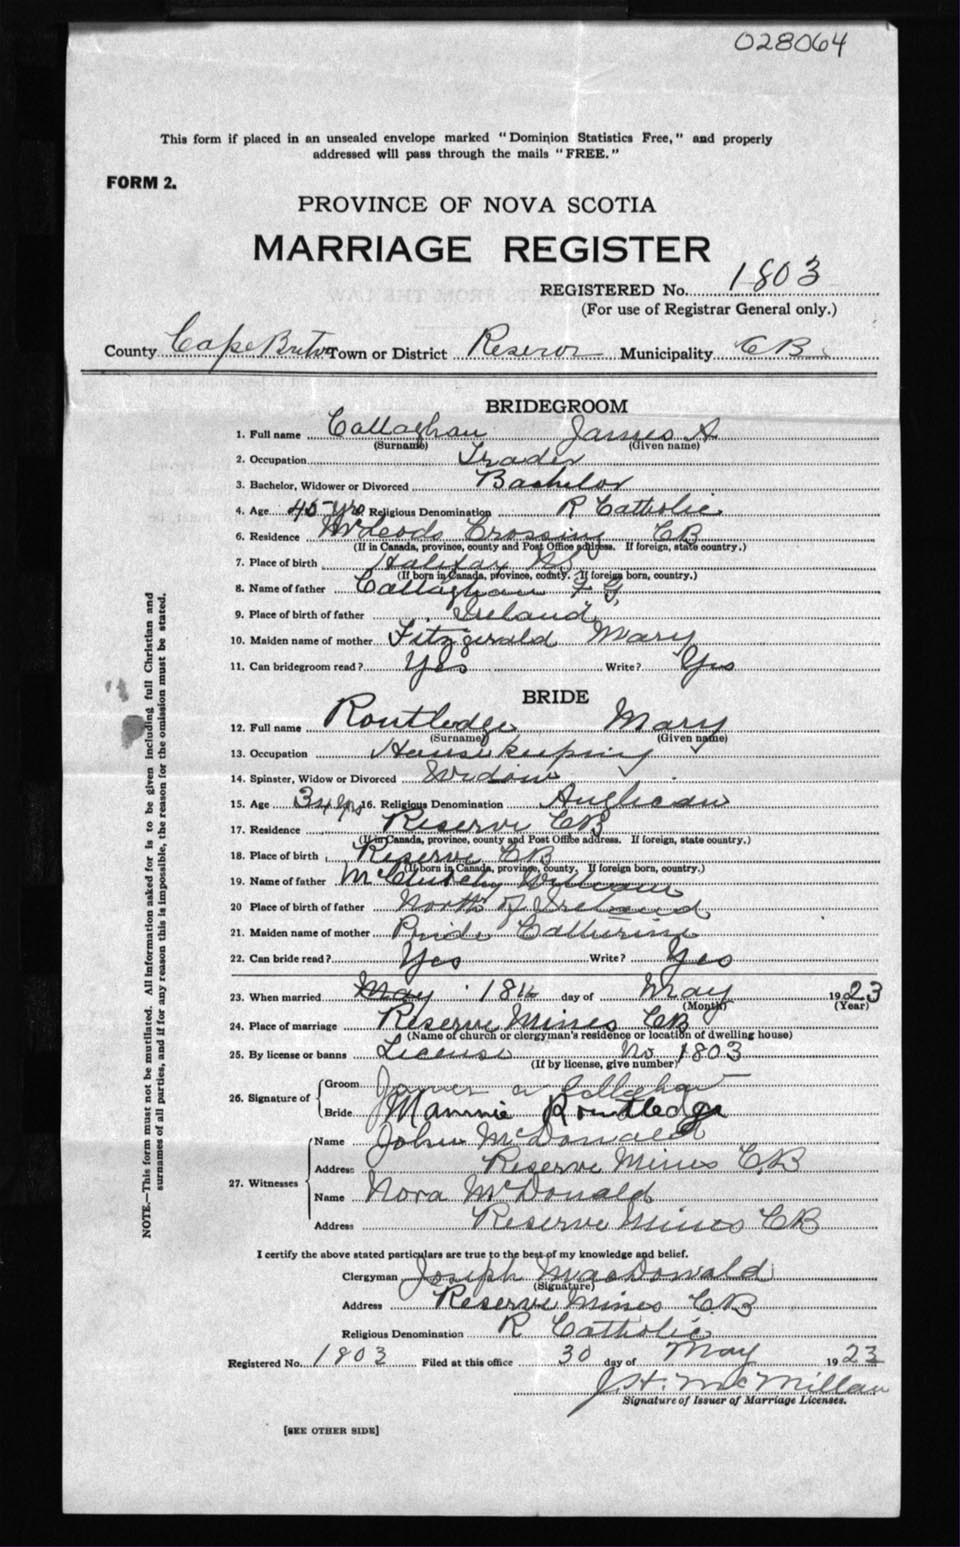 028064
This form if placed in an unsealed envelope marked "Dominion Statistics Free," and properly
addressed will pass through the mails "FREE."
FORM 2.
PROVINCE OF NOVA SCOTIA
MARRIAGE REGISTER
REGISTERED No. 1803
(For use of Registrar General only.)
County Cape Breton Town or District Reserve Municipality CB
BRIDEGROOM
1. Full name Callaghan James A
(Surname) (Given name)
2. Occupation Trader
3. Bachelor, Widower or Divorced Bachelor
4. Age 45 yrs 5. Religious Denomination R Catholic
6. Residence McLeods Crossing CB
(If in Canada, province, county and Post Office address. If foreign, state country.)
7. Place of birth Halifax NS
(If born in Canada, province, county. If foreign born, country.)
8. Name of father Callaghan F G
9. Place of father Ireland
10. Maiden name of mother Fitzgerald Mary
11. Can bridegroom read? Yes Write? Yes
BRIDE
12. Full name Routledge Mary
(Surname) (Given name)
13. Occupation Housekeeping
14. Spinster, Widow or Divorced Widow
15. Age 34 yrs 16. Religious Denomination Anglican
17. Residence Reserve CB
(If in Canada, province, county and Post Office address. If foreign, state country.)
18. Place of birth Reserve CB
(If born in Canada, province, county, If foreign born, country.)
19. Name of father William
20 Place of birth of father North of Ireland
21. Maiden name of mother Catherine
22. Can bride read? Yes Write? Yes
23. When married May 18 day of May 1923
(Month) (Year)
24. Place of marriage Reserve Mines CB
(Name of church or clergyman's residence or location of dwelling house)
25. By license or banns License No 1803
(If by license, give number)
26. Signature of Groom James A Callaghan
Bride Mannie Routledge
27. Witnesses Name John McDonald
Address Reserve Mines C.B
Name Nora McDonald
Address Reserve Mines CB
I certify the above stated particulars are true to the best of my knowledge and belief.
Clergyman Joseph MacDonald
(Signature)
Address Reserve Mines C.B
Religious Denomination R Catholic
Registered No. 1803 Filed at this office 30 day of May 1923
J.H. McMillan
Signature of Issuer of Marriage Licenses.
[SEE OTHER SIDE]
NOTE.—This form must not be mutilated. All information asked for is to be given including full Christian and
surnames of all parties, and if for any reason this is impossible, the reason for the omission must be stated.